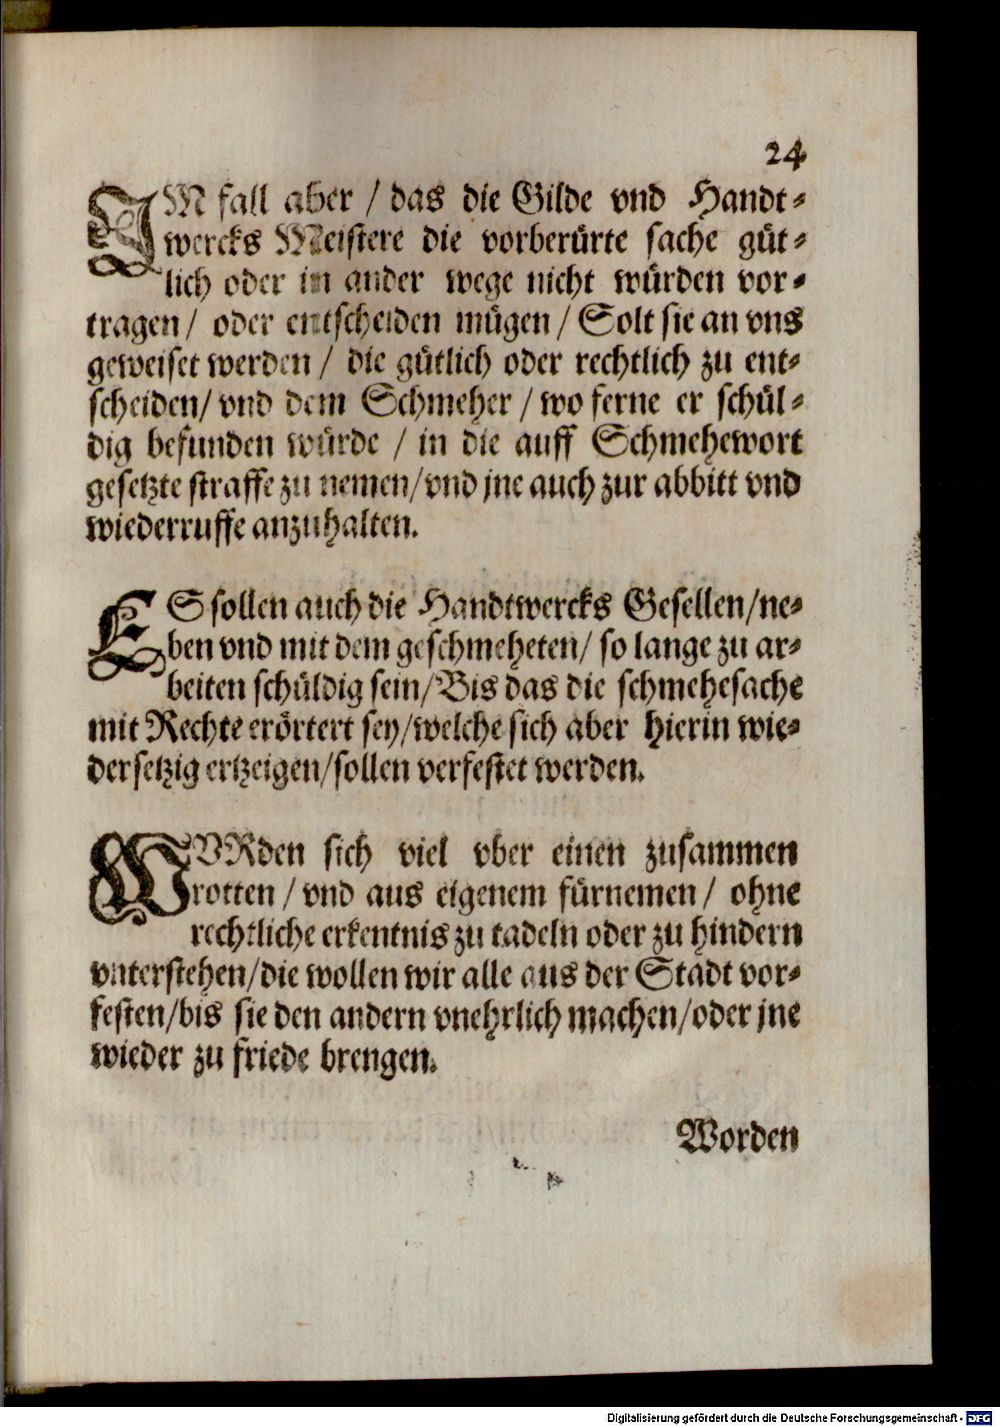 24
IM fall aber / das die Gilde vnd Handt⸗
wercks Meistere die vorberürte sache güt⸗
lich oder in ander wege nicht würden vor⸗
tragen / oder entscheiden mügen / Solt sie an vns
geweiset werden / die gütlich oder rechtlich zu ent⸗
scheiden / vnd dem Schmeher / wo ferne er schül⸗
dig befunden würde / in die auff Schmehewort
gesetzte straffe zu nemen / vnd jne auch zur abbitt vnd
wiederruffe anzuhalten.
ES sollen auch die Handtwercks Gesellen / ne⸗
ben vnd mit dem geschmeheten / so lange zu ar⸗
beiten schüldig sein / Bis das die schmehesache
mit Rechte erörtert sey / welche sich aber hierin wie⸗
dersetzig ertzeigen / sollen verfestet werden.
WVRden sich viel vber einen zusammen
rotten / vnd aus eigenem fürnemen / ohne
rechtliche erkentnis zu tadeln oder zu hindern
vnterstehen / die wollen wir alle aus der Stadt vor⸗
festen / bis sie den andern vnehrlich machen / oder jne
wieder zu friede brengen.
Worden
Digitalisierung gefördert durch die Deutsche Forschungsgemeinschaft - DFG